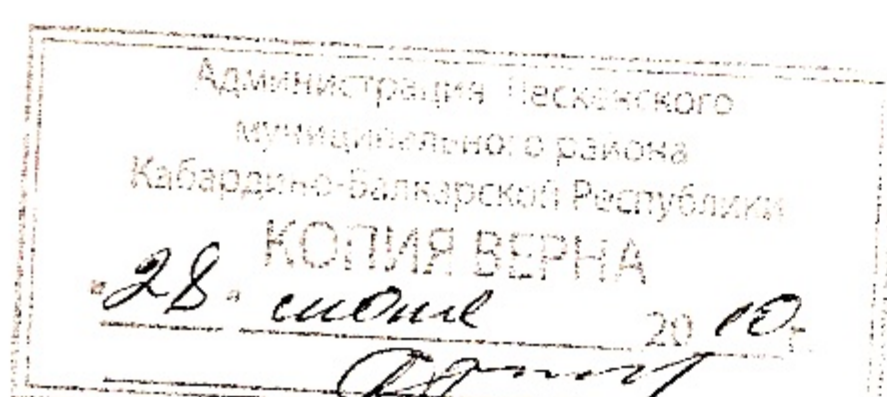 Администрация Лескенского
муниципального района
Кабардино-Балкарской Республики
КОПИЯ ВЕРНА
"28" 2010г.